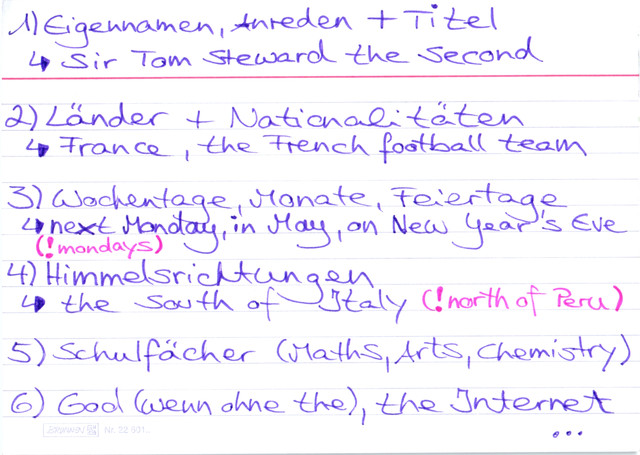 1) Eigennamen, Anreden + Titel
↳ Sir Tom Steward the Second
2) Länder + Nationalitäten
↳ France, the French football team
3) Wochentage, Monate, Feiertage
↳ next Monday, in May, on New Year's Eve
(! mondays)
4) Himmelsrichtungen
↳ the South of Italy (! north of Peru)
5) Schulfächer (Maths, Arts, Chemistry)
6) God (wenn ohne the), the Internet
...